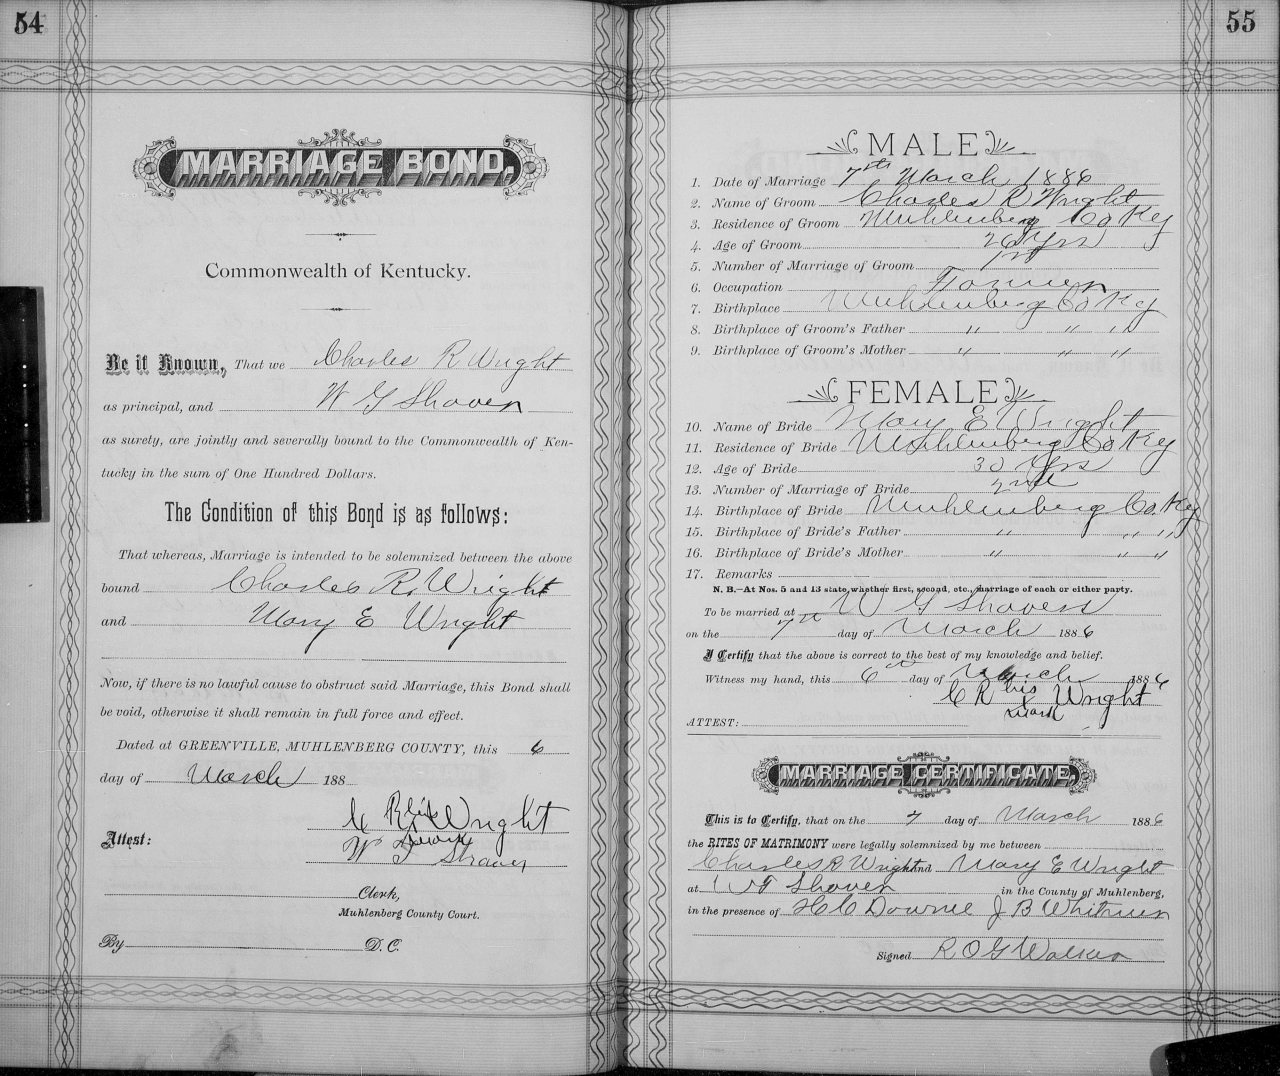 54
MARRIAGE BOND.
Commonwealth of Kentucky.
Be it Known, That we Charles R Wright
as principal, and W G Shaver
as surety, are jointly and severally bound to the Commonwealth of Ken-
tucky in the sum of One Hundred Dollars.
The Condition of this Bond is as follows:
That whereas, Marriage is intended to be solemnized between the above
bound Charles R. Wright
and Mary E Wright
Now, if there is no lawful cause to obstruct said Marriage, this Bond shall
be void, otherwise it shall remain in full force and effect.
Dated at GREENVILLE, MUHLENBERG COUNTY, this 6
day of March 188
C R his Wright
mark
Attest: W G Shaver
Clerk,
Muhlenberg County Court.
By D. C.
55
MALE
1. Date of Marriage 7th March 1886
2. Name of Groom Charles R Wright
3. Residence of Groom Muhlenberg Co Ky
4. Age of Groom 26 Yrs
5. Number of Marriage of Groom 1st
6. Occupation Farmer
7. Birthplace Muhlenberg Co Ky
8. Birthplace of Groom's Father " " "
9. Birthplace of Groom's Mother " " "
FEMALE
10. Name of Bride Mary E Wright
11. Residence of Bride Muhlenberg Co Ky
12. Age of Bride 30 Yrs
13. Number of Marriage of Bride 2nd
14. Birthplace of Bride Muhlenberg Co. Ky
15. Birthplace of Bride's Father " " "
16. Birthplace of Bride's Mother " " "
17. Remarks
N. B.—At Nos. 5 and 13 state, whether first, second, etc., marriage of each or either party.
To be married at W G Shavers
on the 7th day of March 1886
I Certify that the above is correct to the best of my knowledge and belief.
Witness my hand, this 6th day of March 1886
C R his Wright
x
mark
ATTEST:
MARRIAGE CERTIFICATE.
This is to Certify, that on the 7 day of March 1886
the RITES OF MATRIMONY were legally solemnized by me between
Charles R Wright and Mary E Wright
at Shaver in the County of Muhlenberg,
in the presence of H C Downie J B Whitmer
Signed R O G Walker